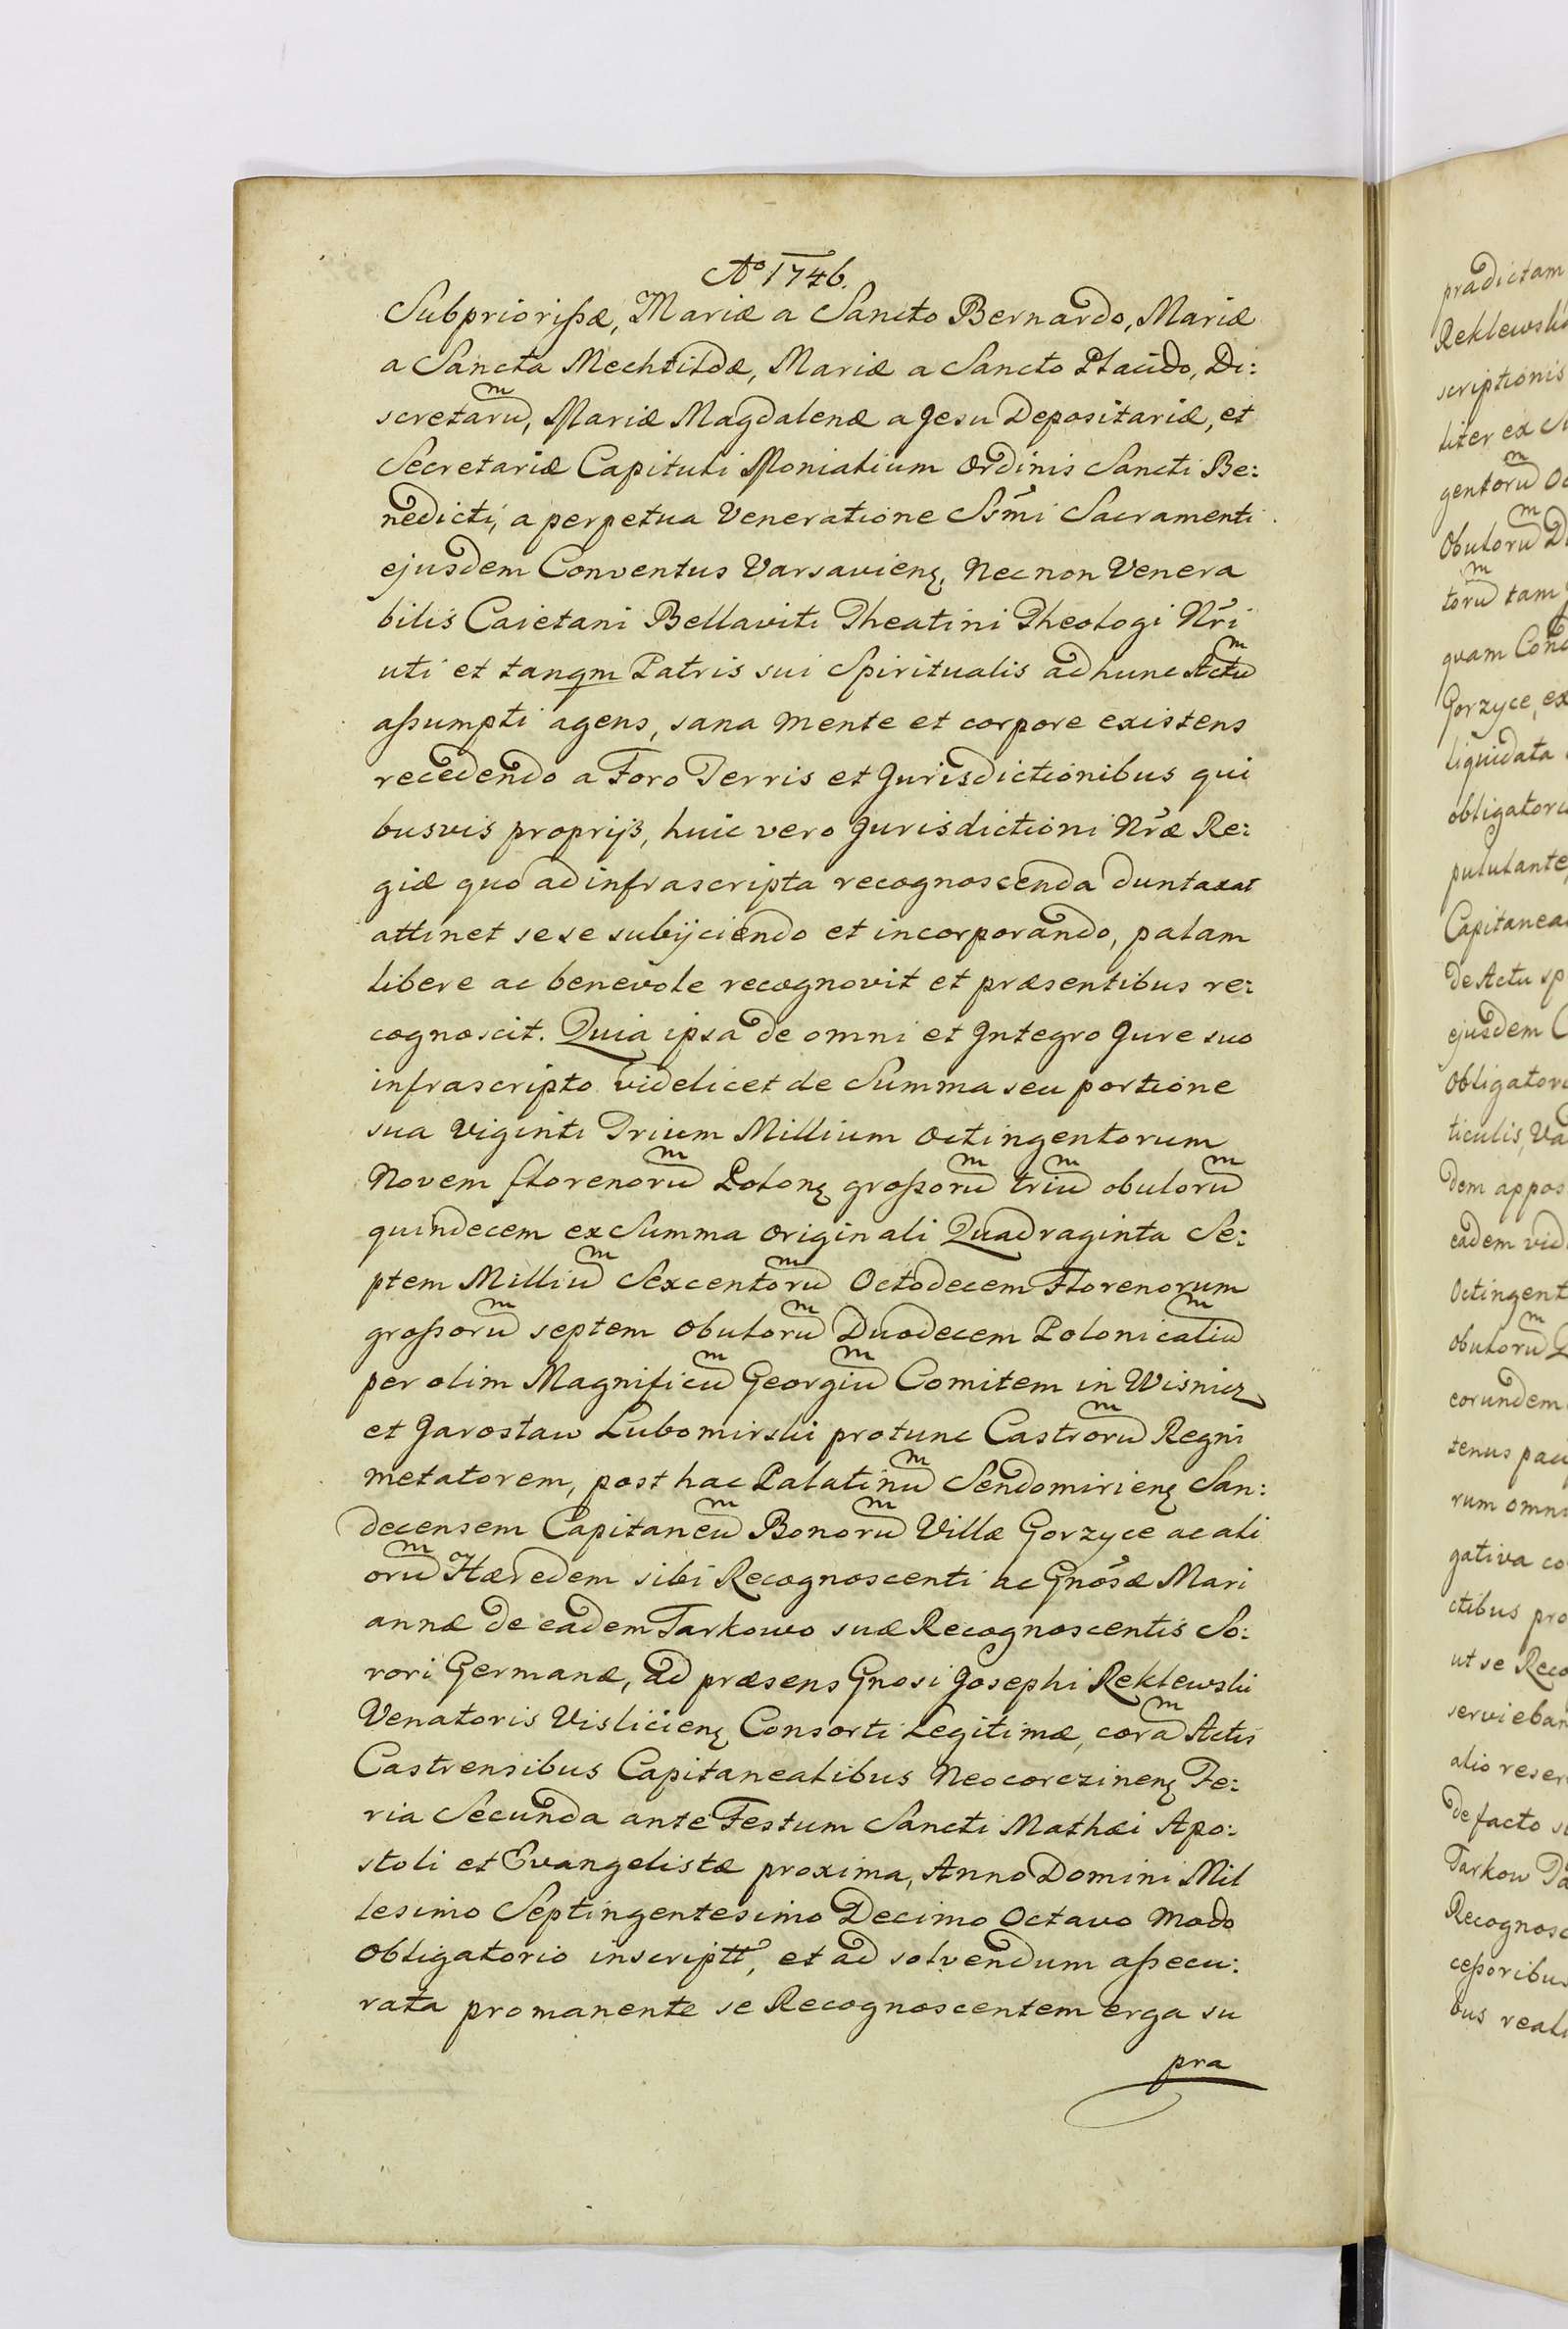 Aº 1746.
Subpriorißæ, Mariæ a Sancto Bernardo, Mariæ
a Sancta Mechtildæ, Mariæ a Sancto Placido, Di:
scretaru͠m, Mariæ Magdalenæ a Jesu Depositariæ, et
Secretariæ Capituli Monialium Ordinis Sancti Be:
nedicti, a perpetua Veneratione Ssm̃i Sacramenti
ejusdem Conventus Varsavienę, Nec non Venera
bilis Caietani Bellaviti Theatini Theologi Nr̃i
uti et tanqm Patris sui Spiritualis ad hunc Actum
aßumpti agens, sana mente et corpore existens
recedendo a Foro Terris et Jurisdictionibus qui
busvis proprijs, huic vero Jurisdictioni Nr̃æ Re:
giæ quo ad infrascripta recognoscenda duntaxat
attinet sese subijciendo et incorporando, palam
libere ac benevole recognovit et præsentibus re:
cognoscit. Quia ipsa de omni et Integro Jure suo
infrascripto videlicet de Summa seu portione
sua Viginti Trium Millium Octingentorum
Novem florenorum Polonę großorum trium obulorum
quindecem ex Summa originali Quadraginta Se:
ptem Millium Sexcentorum Octodecem Florenorum
großorum septem obulorum Duodecem Polonicalium
per olim Magnificum Georgium Comitem in Wisnicz
et Jarosław Lubomirski protunc Castrorum Regni
metatorem, post hac Palatinum Sendomirienę San:
decensem Capitaneum Bonorum Villæ Gorzyce ac ali
orum Hæredem sibi Recognoscenti ac Gnõsæ Mari
annæ de eadem Tarkowo suæ Recognoscentis So:
rori Germanæ, ad præsens Gnosi Josephi Reklewski
Venatoris Vislicienę Consorti Legitimæ, coram Actis
Castrensibus Capitanealibus Neocorczinenę Fe:
ria Secunda ante Festum Sancti Mathæi Apo:
stoli et Evangelistæ proxima, Anno Domini Mil
lesimo Septingentesimo Decimo Octavo Modo
Obligatorio inscriptt, et ad solvendum aßecu:
rata promanente se Recognoscentem erga su
pra
prædictam
Reklewski
scriptionis
liter ex Su
gentorum Oc
Obulorum Du
torum tam
quam Cond
Gorzyce, ex
liquidata
obligatori
pululante,
Capitanea
De Actu sp
ejusdem C
Obligatori
ticulis, Va
dem appos
eadem vid
Octingent
obulorum
eorundem
tenus paci
rum omni
gativa co
ctibus pro
ut se Reco
servieban
alio reser
de facto
Tarkow
Recognosc
ceßoribus
bus reali